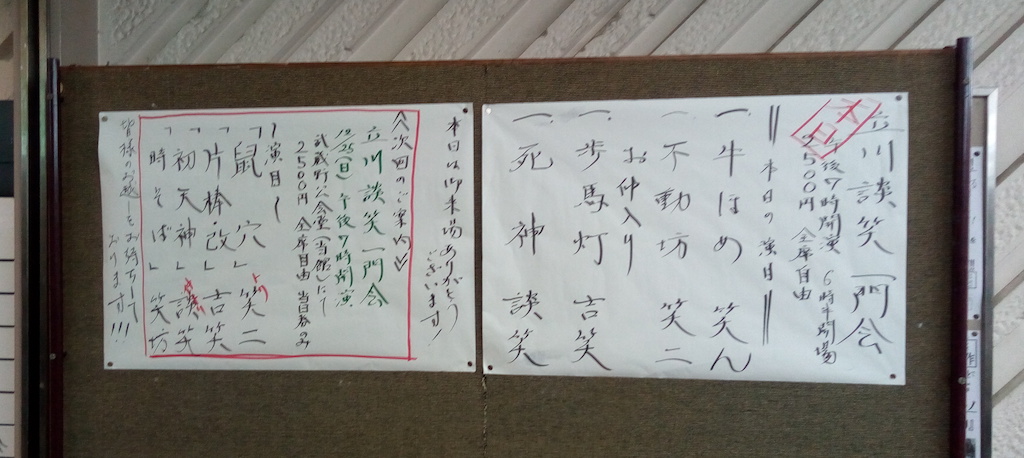 立川談笑一門会
午後7時開演 6時半開場
2500円 全席自由
本日の演目
一.牛ほめ 笑ん
一.不動坊 笑二
お仲入り
一.歩馬灯 吉笑
一.死神 談笑
本日は御来場ありがとう
ございます!
《次回のご案内》
立川談笑一門会
12/25(日)午後7時開演
武蔵野公会堂(当館)にて
2500円 全席自由 当日券のみ
ー演目ー
「鼠穴」 笑二
「片棒改」 吉笑
「初天神」 談笑
「時そば」 笑坊
皆様のお越しをお待ちして
おります!!!